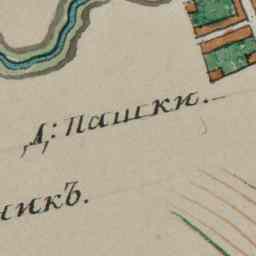 Д: Пашки.
никъ.